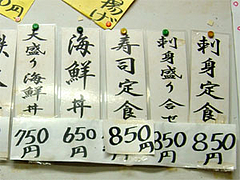 刺身定食
850円
刺身盛り合せ
850円
寿司定食
850円
海鮮丼
650円
大盛り海鮮丼
750円
揚げ
円